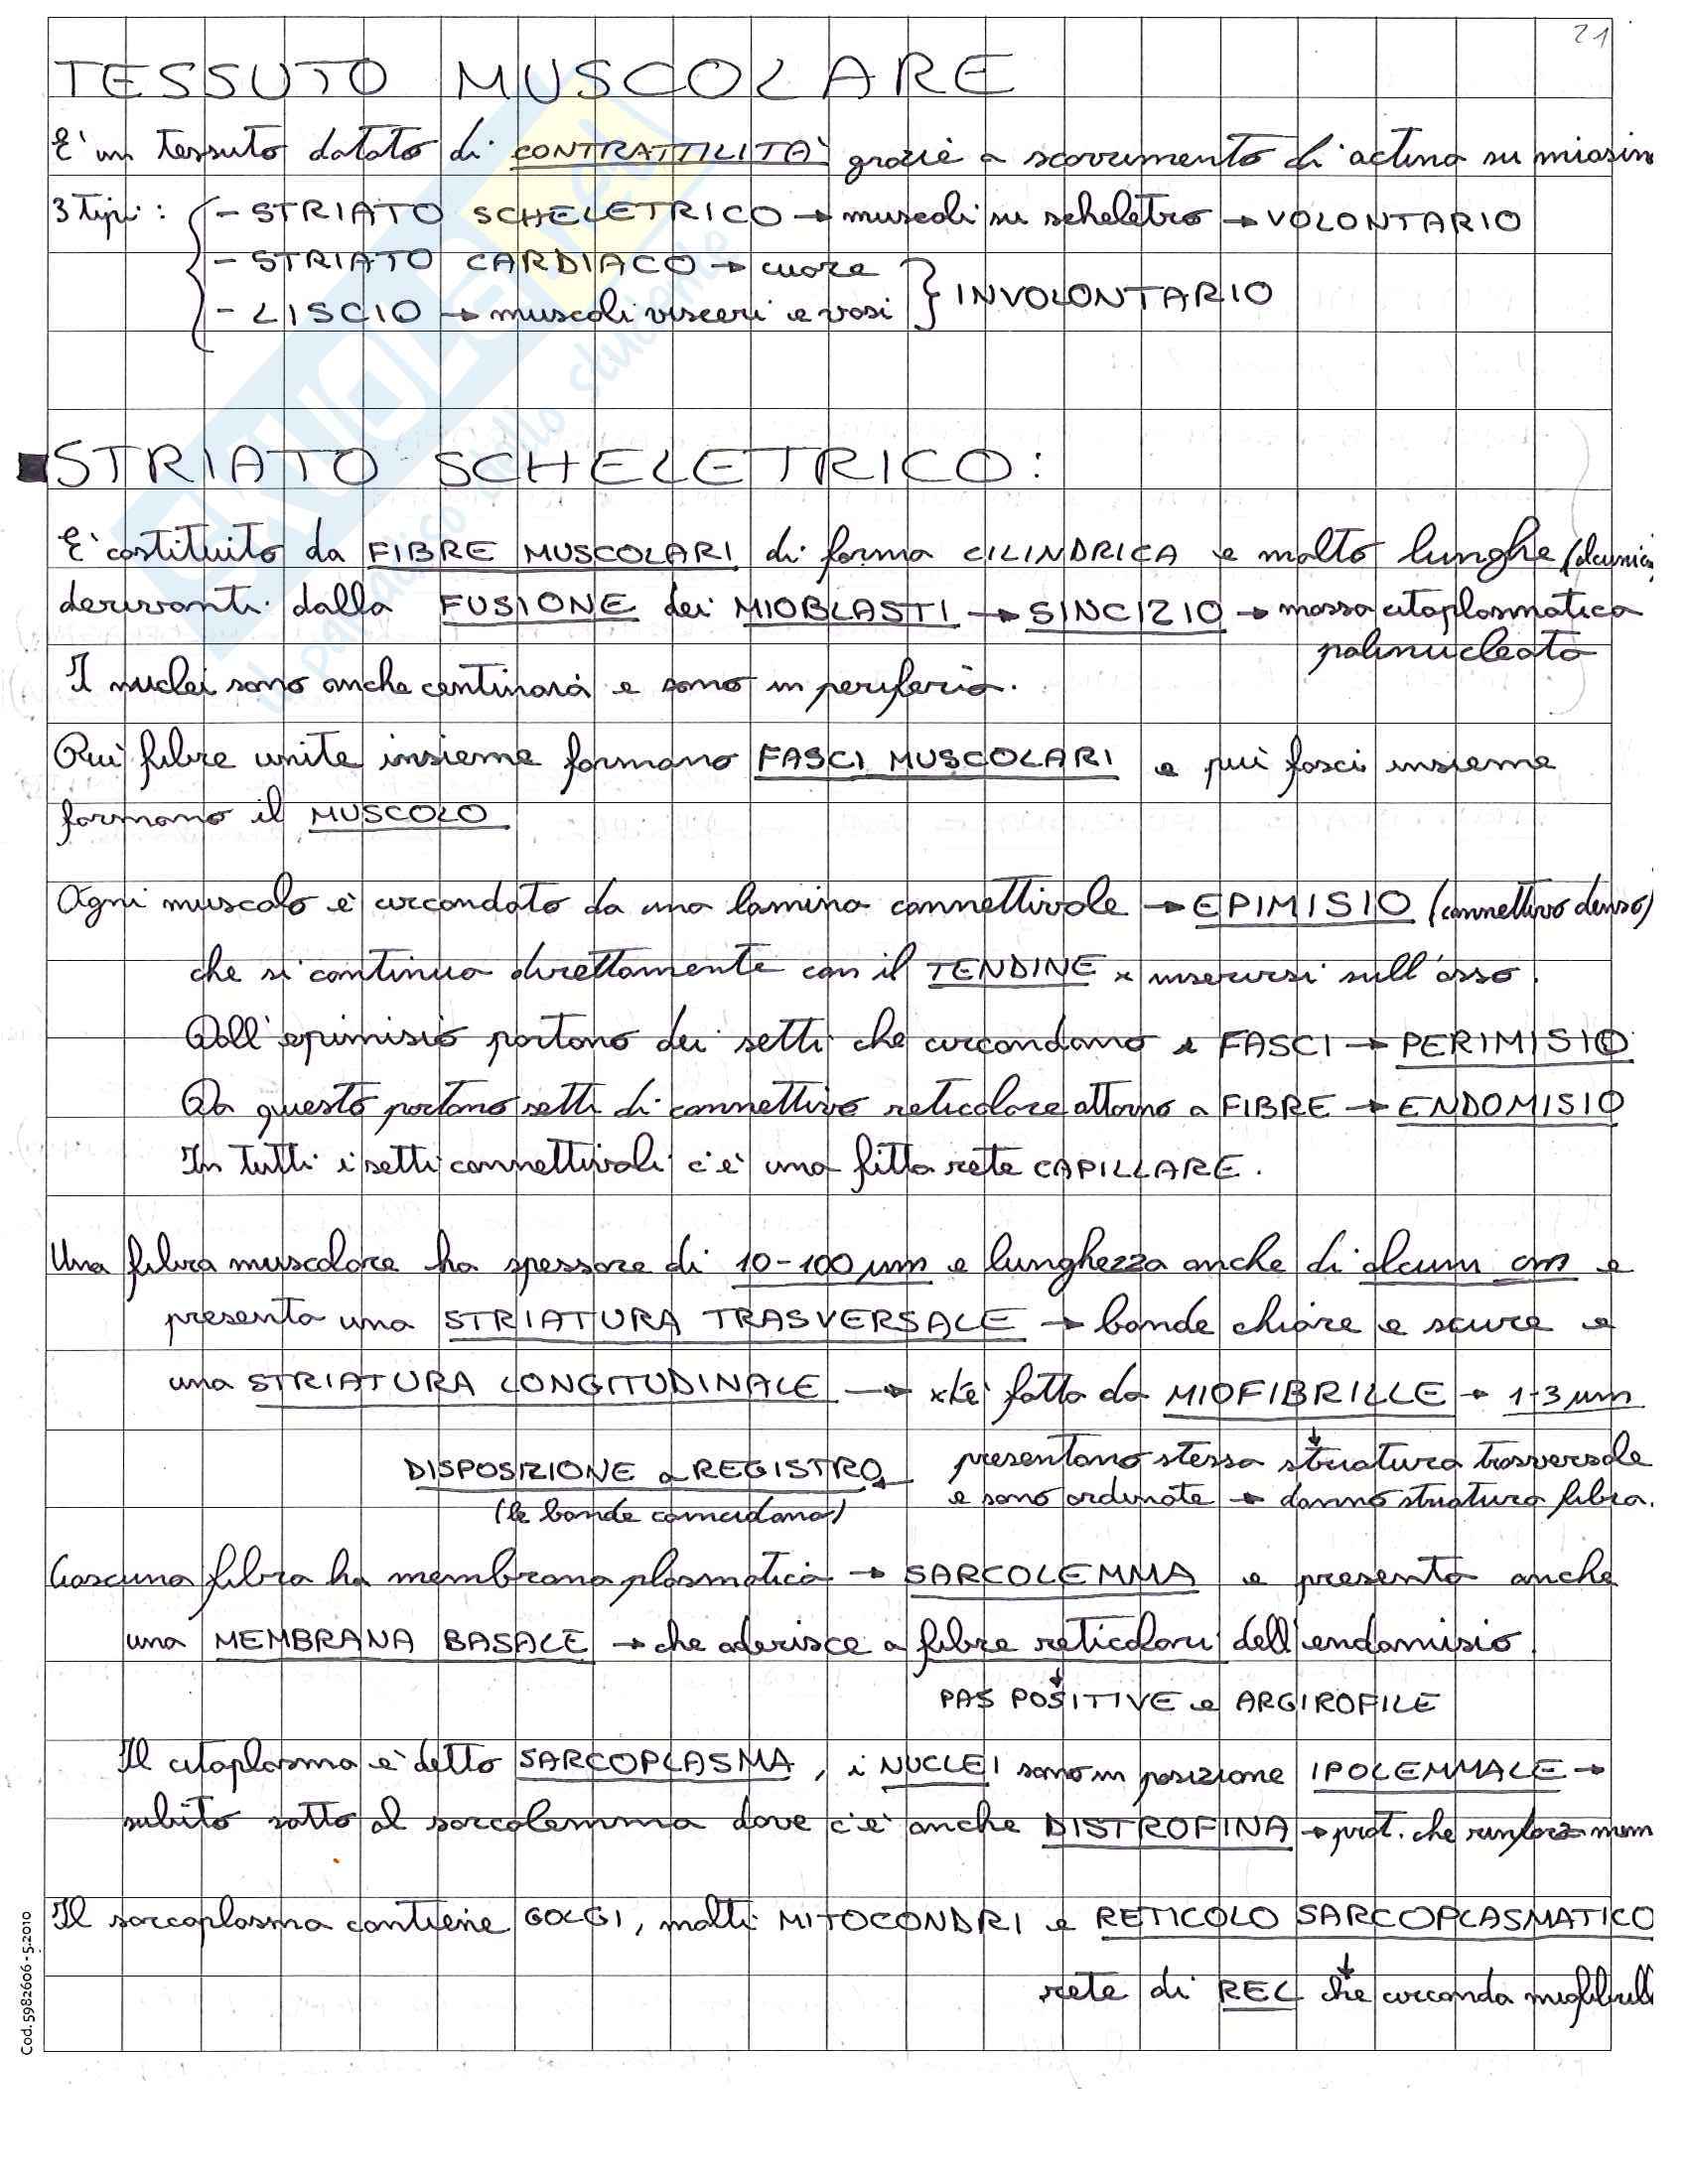 21
TESSUTO MUSCOLARE
E' un tessuto dotato di CONTRATTILITA' grazie a scorrimento di actina su miosin
3 tipi: - STRIATO SCHELETRICO → muscoli su scheletro → VOLONTARIO
- STRIATO CARDIACO → cuore
- LISCIO → muscoli visceri e vasi } INVOLONTARIO
STRIATO SCHELETRICO:
E' costituito da FIBRE MUSCOLARI di forma CILINDRICA e molto lunghe
derivanti dalla FUSIONE dei MIOBLASTI → SINCIZIO → massa citoplasmatica
polinucleata
I nuclei sono anche centinaia e sono in periferia.
Più fibre unite insieme formano FASCI MUSCOLARI e più fasci insieme
formano il MUSCOLO
Ogni muscolo è circondato da una lamina connettivale → EPIMISIO (connettivo denso)
che si continua direttamente con il TENDINE x inserirsi sull'osso.
Dall'epimisio partono dei setti che circondano i FASCI → PERIMISIO
Da questo partono setti di connettivo reticolare attorno a FIBRE → ENDOMISIO
In tutti i setti connettivali c'è una fitta rete CAPILLARE.
Una fibra muscolare ha spessore di 10-100 µm e lunghezza anche di alcuni cm e
presenta una STRIATURA TRASVERSALE → bande chiare e scure e
una STRIATURA LONGITUDINALE → xkè fatta da MIOFIBRILLE → 1-3 µm
DISPOSIZIONE a REGISTRO ← presentano stessa striatura trasversale
(le bande coincidono) e sono ordinate → danno striatura fibra.
Ciascuna fibra ha membrana plasmatica → SARCOLEMMA e presenta anche
una MEMBRANA BASALE → che aderisce a fibre reticolari dell'endomisio.
↓
PAS POSITIVE e ARGIROFILE
Il citoplasma è detto SARCOPLASMA, i NUCLEI sono in posizione IPOLEMMALE →
subito sotto al sarcolemma dove c'è anche DISTROFINA → prot. che rinforza mem
Il sarcoplasma contiene GOLGI, molti MITOCONDRI e RETICOLO SARCOPLASMATICO
↓
rete di REL che circonda miofibrill
Cod. 5982606 - 5.2010
SKUOLA.net
il paradiso dello studente